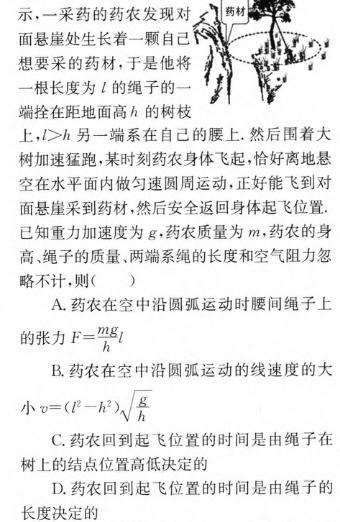 药材
示,一采药的药农发现对
面悬崖处生长着一颗自己
想要采的药材,于是他将
一根长度为 l 的绳子的一
端拴在距地面高 h 的树枝
上,l>h 另一端系在自己的腰上. 然后围着大
树加速猛跑,某时刻药农身体飞起,恰好离地悬
空在水平面内做匀速圆周运动,正好能飞到对
面悬崖采到药材,然后安全返回身体起飞位置.
已知重力加速度为 g,药农质量为 m,药农的身
高、绳子的质量、两端系绳的长度和空气阻力忽
略不计,则(　　)
A. 药农在空中沿圆弧运动时腰间绳子上
的张力 F=\frac{mg}{h}l
B. 药农在空中沿圆弧运动的线速度的大
小 v=(l²-h²)\sqrt{\frac{g}{h}}
C. 药农回到起飞位置的时间是由绳子在
树上的结点位置高低决定的
D. 药农回到起飞位置的时间是由绳子的
长度决定的